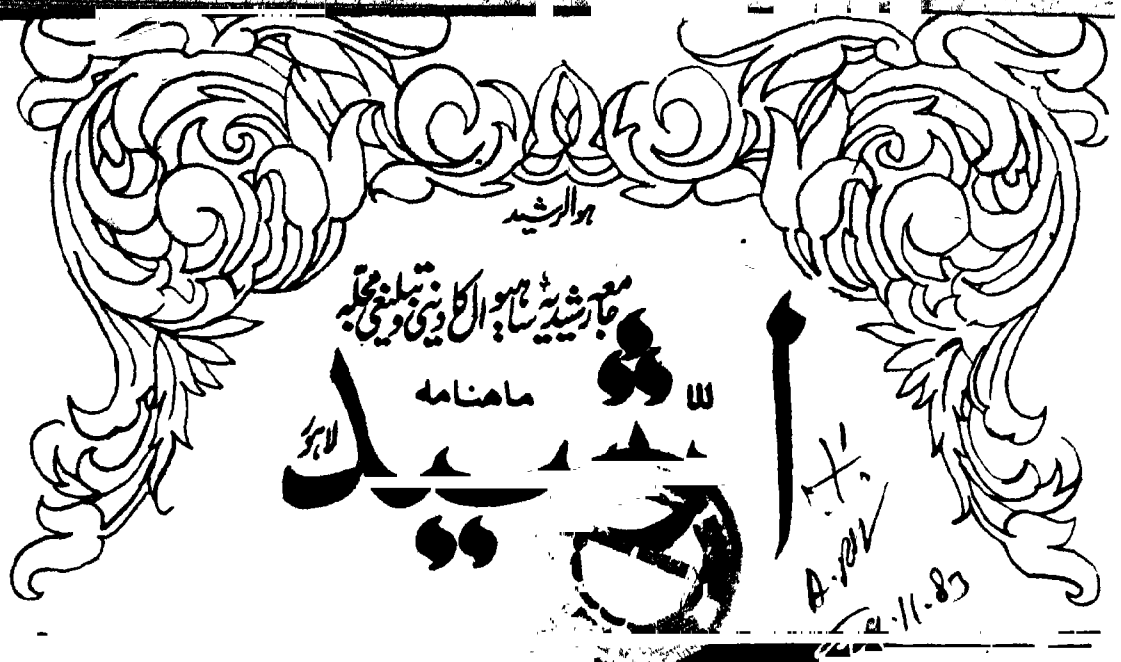 ہوالرشید
جامعہ رشیدیہ ساہیوال کا دینی و تبلیغی مجلّہ
ماهنامه
الرشید
لاہور
11-83